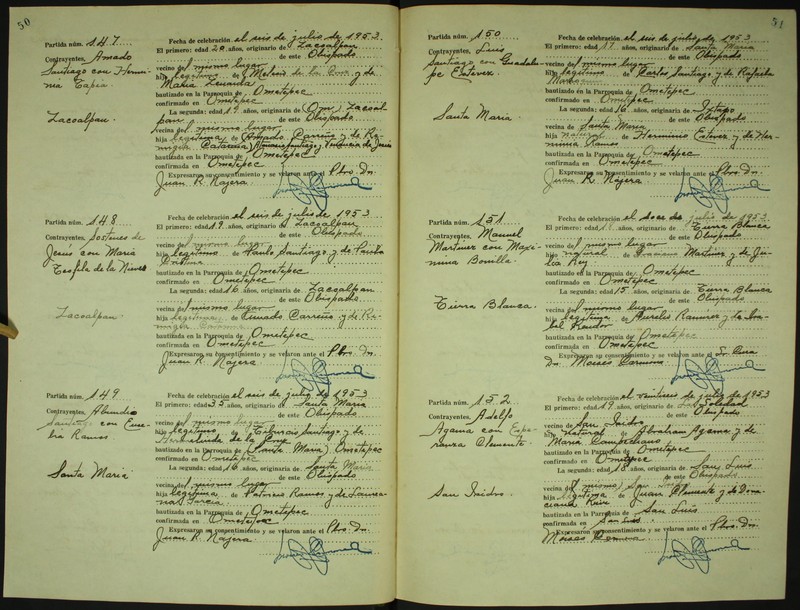 50
Partida núm. 147
Contrayentes, Amado
Santiago con Hermi-
nia Tapia
Zacoalpan.
Fecha de celebración el seis de julio de 1953.
El primero: edad 20 años, originario de Zacoalpan
de este Obispado
vecino del mismo lugar
hijo legítimo de de la Cruz y de
María
bautizado en la Parroquia de Ometepec
confirmado en Ometepec
La segunda: edad 19 años, originaria de Zacoal-
pan de este Obispado.
vecina del mismo lugar
hija legítima de Amado Carreño y de Re-
migia
bautizada en la Parroquia de Ometepec
confirmada en Ometepec
Expresaron su consentimiento y se velaron ante el Pbro. Dn.
Juan R. Najera.
Partida núm. 148
Contrayentes, Sostenes de
Jesus con Maria
Teofila de la Nieves
Zacoalpan.
Fecha de celebración el seis de julio de 1953
El primero: edad 19 años, originario de Zacoalpan
de este Obispado
vecino del mismo lugar
hijo legítimo de Pablo Santiago y de
Cristina
bautizado en la Parroquia de Ometepec
confirmado en Ometepec
La segunda: edad 16 años, originaria de Zacoalpan
de este Obispado.
vecina del mismo lugar
hija legítima de Carreño y de Re-
migia
bautizada en la Parroquia de Ometepec
confirmada en Ometepec
Expresaron su consentimiento y se velaron ante el Pbro. Dn.
Juan R. Najera
Partida núm. 149
Contrayentes, Abundio
Santiago con Euse-
bia Ramos
Santa Maria
Fecha de celebración el seis de julio de 1953
El primero: edad 33 años, originario de Santa Maria
de este Obispado.
vecino del mismo lugar
hijo legítimo de Tiburcio Santiago y de
de la Cruz
bautizado en la Parroquia de (Santa Maria) Ometepec
confirmado en Ometepec
La segunda: edad 16 años, originaria de Santa Maria
de este Obispado.
vecina del mismo lugar
hija legítima de Ramos y de Laurea-
na Garcia
bautizada en la Parroquia de Ometepec
confirmada en Ometepec
Expresaron su consentimiento y se velaron ante el Pbro. Dn.
Juan R. Najera.
51
Partida núm. 150
Contrayentes, Luis
Santiago con Guadalu-
pe Estevez.
Santa Maria
Fecha de celebración el seis de julio de 1953
El primero: edad 17 años, originario de Santa Maria
de este Obispado
vecino del mismo lugar
hijo legítimo de Carlos Santiago y de Rafaela
bautizado en la Parroquia de Ometepec
confirmado en Ometepec
La segunda: edad 16 años, originaria de
de este Obispado
vecina de Santa Maria
hija natural de Herminio Estevez y de Her-
minia Ramos
bautizada en la Parroquia de Ometepec
confirmada en Ometepec
Expresaron su consentimiento y se velaron ante el Pbro. Dn.
Juan R. Najera
Partida núm. 151
Contrayentes, Manuel
Martinez con Maxi-
mina Bonilla.
Tierra Blanca.
Fecha de celebración el doce de julio de 1953
El primero: edad años, originario de Tierra Blanca
de este Obispado
vecino del mismo lugar
hijo natural de Martinez y de Ju-
lia Rey
bautizado en la Parroquia de Ometepec
confirmado en Ometepec
La segunda: edad 15 años, originaria de Tierra Blanca
de este Obispado
vecina del mismo lugar
hija legítima de Aurelio Ramirez y de Isa-
bel
bautizada en la Parroquia de Ometepec
confirmada en Ometepec
Expresaron su consentimiento y se velaron ante el Sr. Cura
Dn. Moises Carmona
Partida núm. 152
Contrayentes, Adolfo
Agama con Espe-
ranza Clemente.
San Isidro.
Fecha de celebración el veintiseis de julio de 1953
El primero: edad 19 años, originario de Soledad
de este Obispado
vecino de San Isidro
hijo natural de Abraham Agama y de
Maria
bautizado en la Parroquia de Ometepec
confirmado en Ometepec
La segunda: edad 18 años, originaria de San Luis
de este Obispado.
vecina del mismo San Isidro
hija legítima de Juan Clemente y de Dona-
ciana Ruiz
bautizada en la Parroquia de San Luis
confirmada en San Luis
Expresaron su consentimiento y se velaron ante el Pbro. Dn.
Moises Carmona.